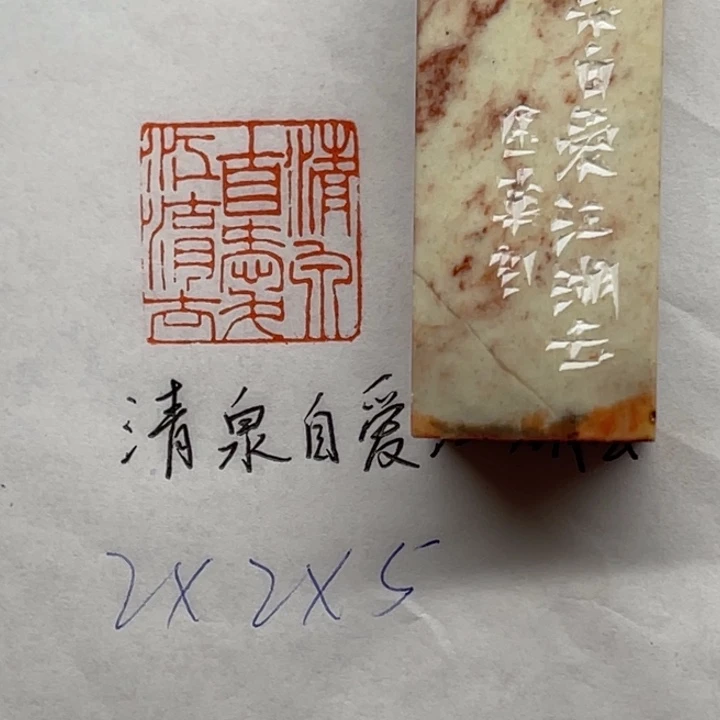 清泉
自愛
江湖去
自爱江湖去
清泉自爱
2X2X5